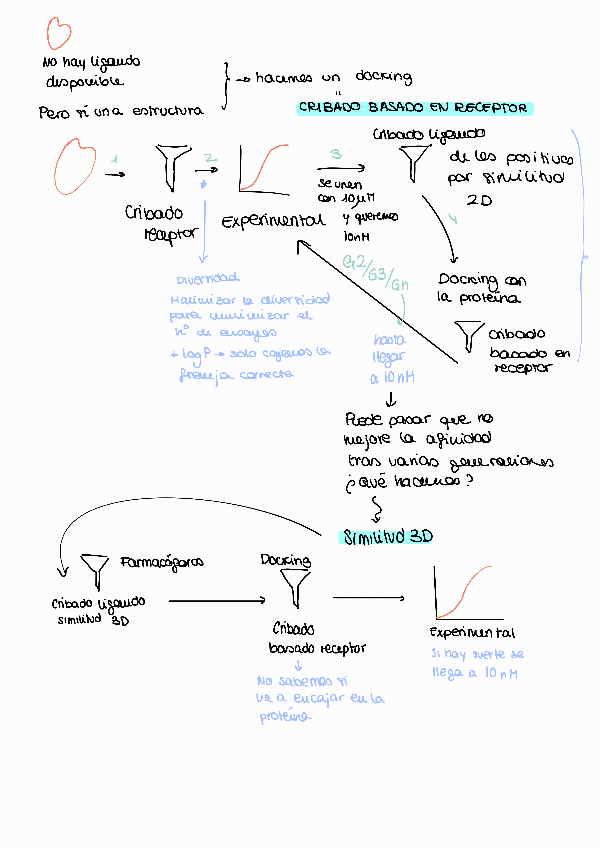 No hay ligando
disponible
Pero sí una estructura
→ hacemos un docking
"
CRIBADO BASADO EN RECEPTOR
1
Cribado
receptor
2
Experimental
3
se unen
con 10 µM
y queremos
10nM
Cribado ligando
de los positivos
por similitud
2D
4
Docking con
la proteína
Cribado
basado en
receptor
G2/G3/Gn
hasta
llegar
a 10 nM
Diversidad
Maximizar la diversidad
para minimizar el
nº de ensayos
+ logP → solo cogemos la
franja correcta
Puede pasar que no
mejore la afinidad
tras varias generaciones
¿Qué hacemos?
Similitud 3D
Farmacóforos
Cribado ligando
similitud 3D
Docking
Cribado
basado receptor
No sabemos si
va a encajar en la
proteína
Experimental
Si hay suerte se
llega a 10 nM